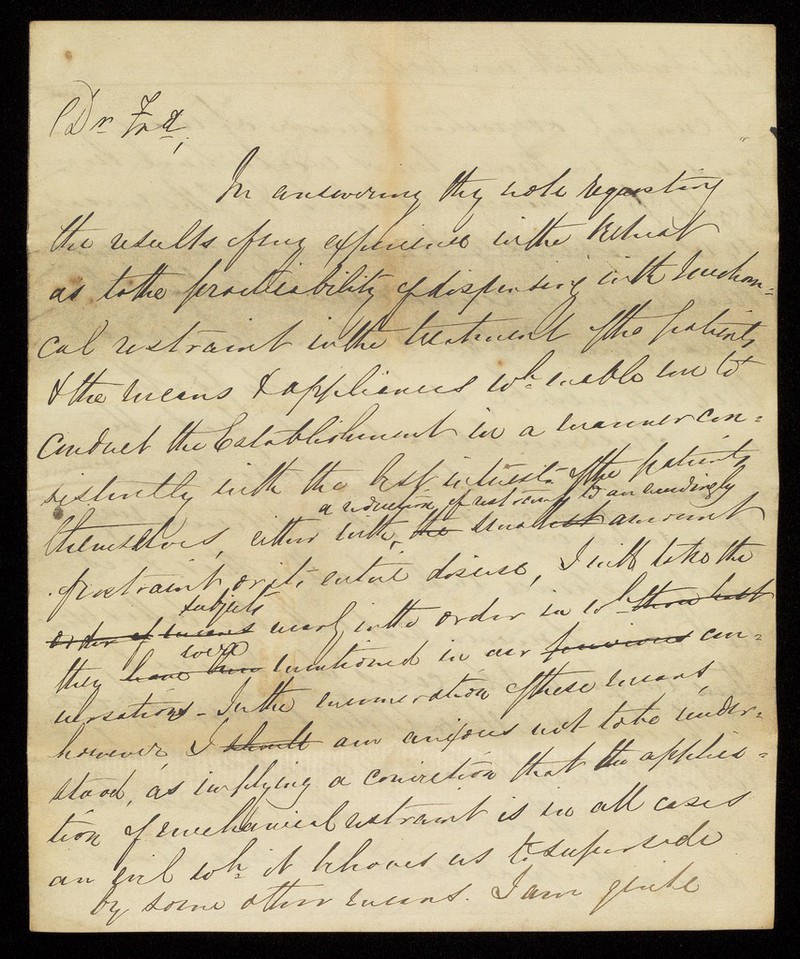 Dr Frd,
In answering thy note requesting
the results of my experience in the Retreat
as to the practicability of dispensing with mechani=
cal restraint in the treatment of the patients
& the means & appliances wh. enable me to
conduct the Establishment in a manner con=
sistently with the best interests of the patients
a reduction of restraint to an exceedingly
themselves, either with, the smallest amount
of restraint, or its entire disuse, I will take the
subjects
order of means nearly in the order in wh. those last
were
they have been mentioned in our previous con=
versations - In the enumeration of these means,
however, I should am anxious not to be under=
stood, as implying a conviction that the applica=
tion of mechanical restraint is in all cases
an evil wh. it behoves us to supersede
by some other means. I am quite